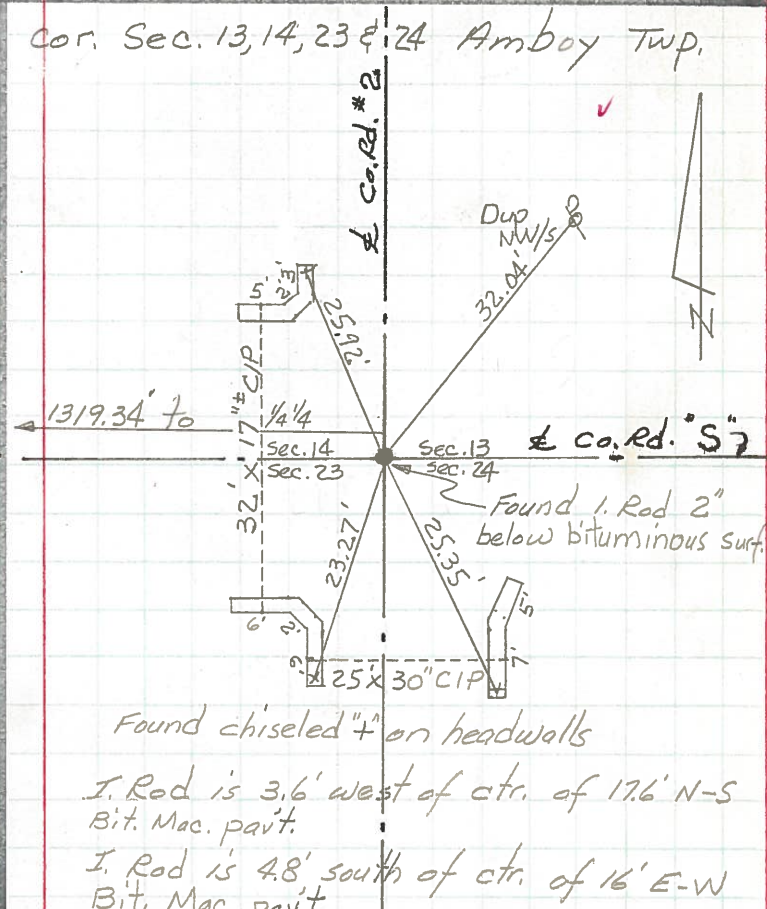 Cor. Sec. 13, 14, 23 & 24 Amboy Twp.
℄ Co. Rd. #2
Dup
NW/S
32.04'
N
5'
2'
3'
25.92'
32' x 17"± CIP
1319.34' to 1/4 1/4
Sec. 14
Sec. 23
Sec. 13
Sec. 24
℄ Co. Rd. "S"
Found I. Rod 2"
below bituminous surf.
23.27'
25.35'
6'
2'
6'
5'
7'
25' x 30" CIP
Found chiseled "+" on headwalls
I. Rod is 3.6' west of ctr. of 17.6' N-S
Bit. Mac. pav't.
I. Rod is 4.8' south of ctr. of 16' E-W
Bit. Mac. pav't